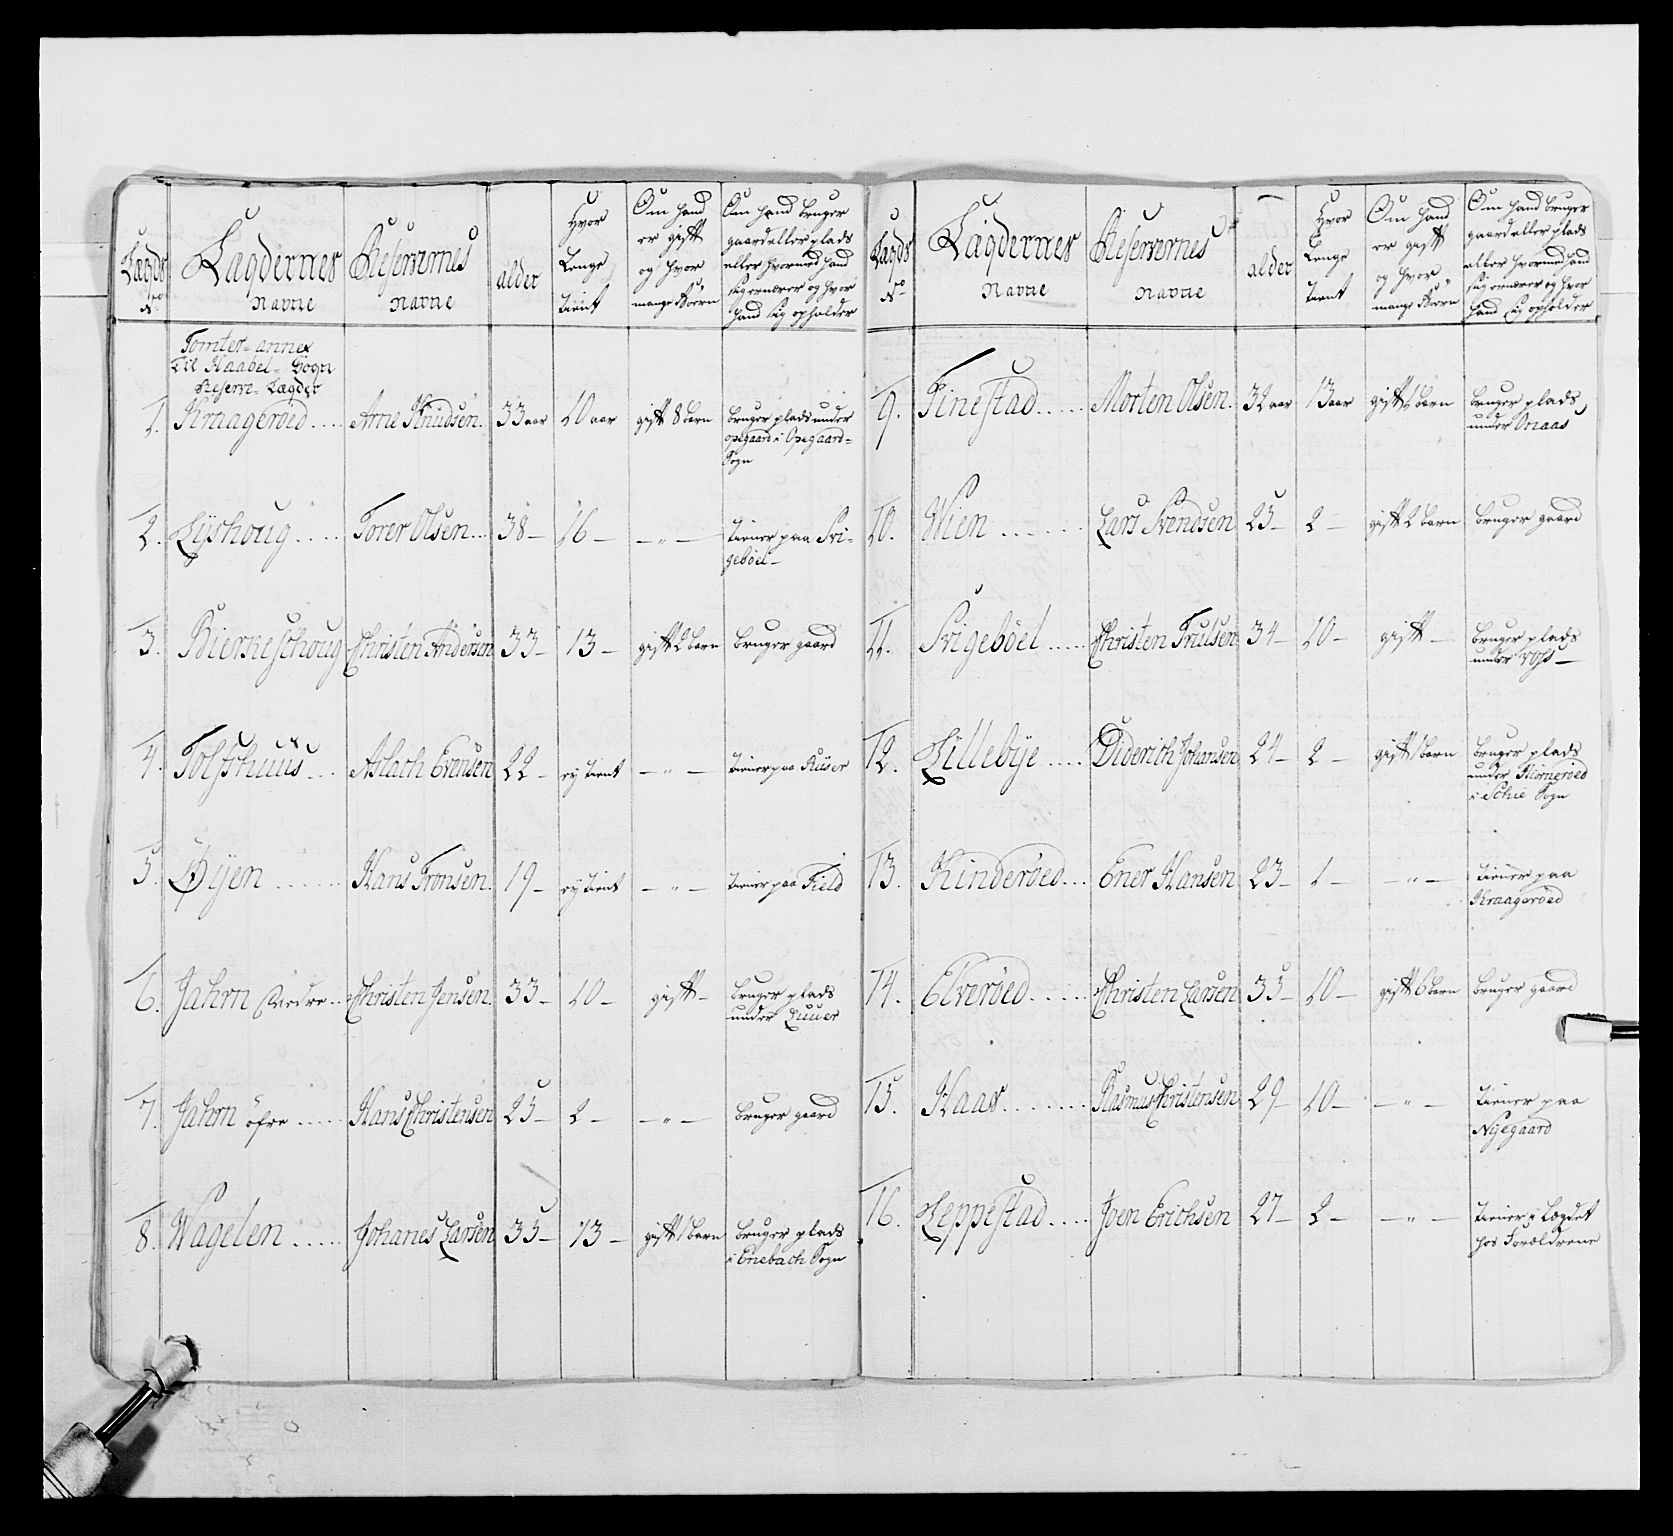 Lægds No | Lægdernes Navne | Reservernes Navne | alder | Hvor Lenge tient | Om hand er gift og hvor mange Børn | Om hand bruger gaard eller plads eller hvormed hand sig ernærer og hvor hand sig opholder
Tomter-annex
til Haabel-Sogn
Reserve-Lægder
1. Kraagerød.... | Arne Knudsen. | 33 aar | 10 aar | gift 8 børn | bruger plads under opegaard i Opegaard-Sogn
2. Lÿshoug.... | Torer Olsen... | 38 – | 16 – | – „ – | tiener paa Svi-gebøel –
3. Bierkeschoug | Christen Andersen | 33 – | 13 – | gift 2 børn | bruger gaard
4. Tolfshuus... | Aslach Evensen | 22 – | eÿ tient | – „ – | tiener paa Ruser
5. Øÿen...... | Hans Tronsen. | 19 – | eÿ tient | – „ – | tiener paa Field
6. Jahrn Nedre.. | Christen Jensen. | 33 – | 10 – | gift – | bruger plads under Luuer
7. Jahrn øfre..... | Hans Christensen | 25 – | 2 – | – „ – | bruger gaard
8. Wagelen..... | Johanes Larsen | 35 – | 13 – | gift 1 børn | bruger plads i Enebach Sogn
Lægds No | Lægdernes Navne | Reservernes Navne | alder | Hvor Lenge tient | Om hand er gift og hvor mange Børn | Om hand bruger gaard eller plads eller hvormed hand sig ernærer og hvor hand sig opholder
9. Finestad..... | Morten Olsen. | 32 aar | 13 aar | gift børn | bruger plads under Onaas
10. Wien...... | Lars Svendsen | 25 – | 2 – | gift 2 børn | bruger gaard
11. Svigebøel..... | Christen Trulsen | 34 – | 10 – | gift – | bruger plads under
12. Lillebÿe..... | Diderich Johansen | 24 – | 2 – | gift 1 børn | bruger plads under Biørnerøed i Schie Sogn
13. Kinderøed... | Ener Hansen | 23 – | 1 – | – „ – | tiener paa Kraagerøed
14. Elverøed..... | Christen Larsen | 35 – | 10 – | gift 6 børn | bruger gaard
15. Haas....... | Rasmus Christensen | 29 – | 10 – | – „ – | tiener paa Nÿegaard
16. Leppestad.... | Joen Erichsen | 27 – | 2 – | – „ – | tiener i Lægdet hos Forældrene